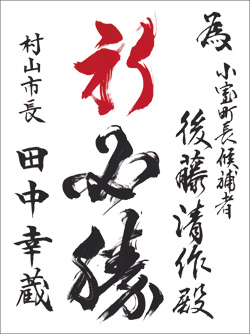 為
小室町長候補者
後藤清作殿
祈必勝
村山市長
田中幸蔵